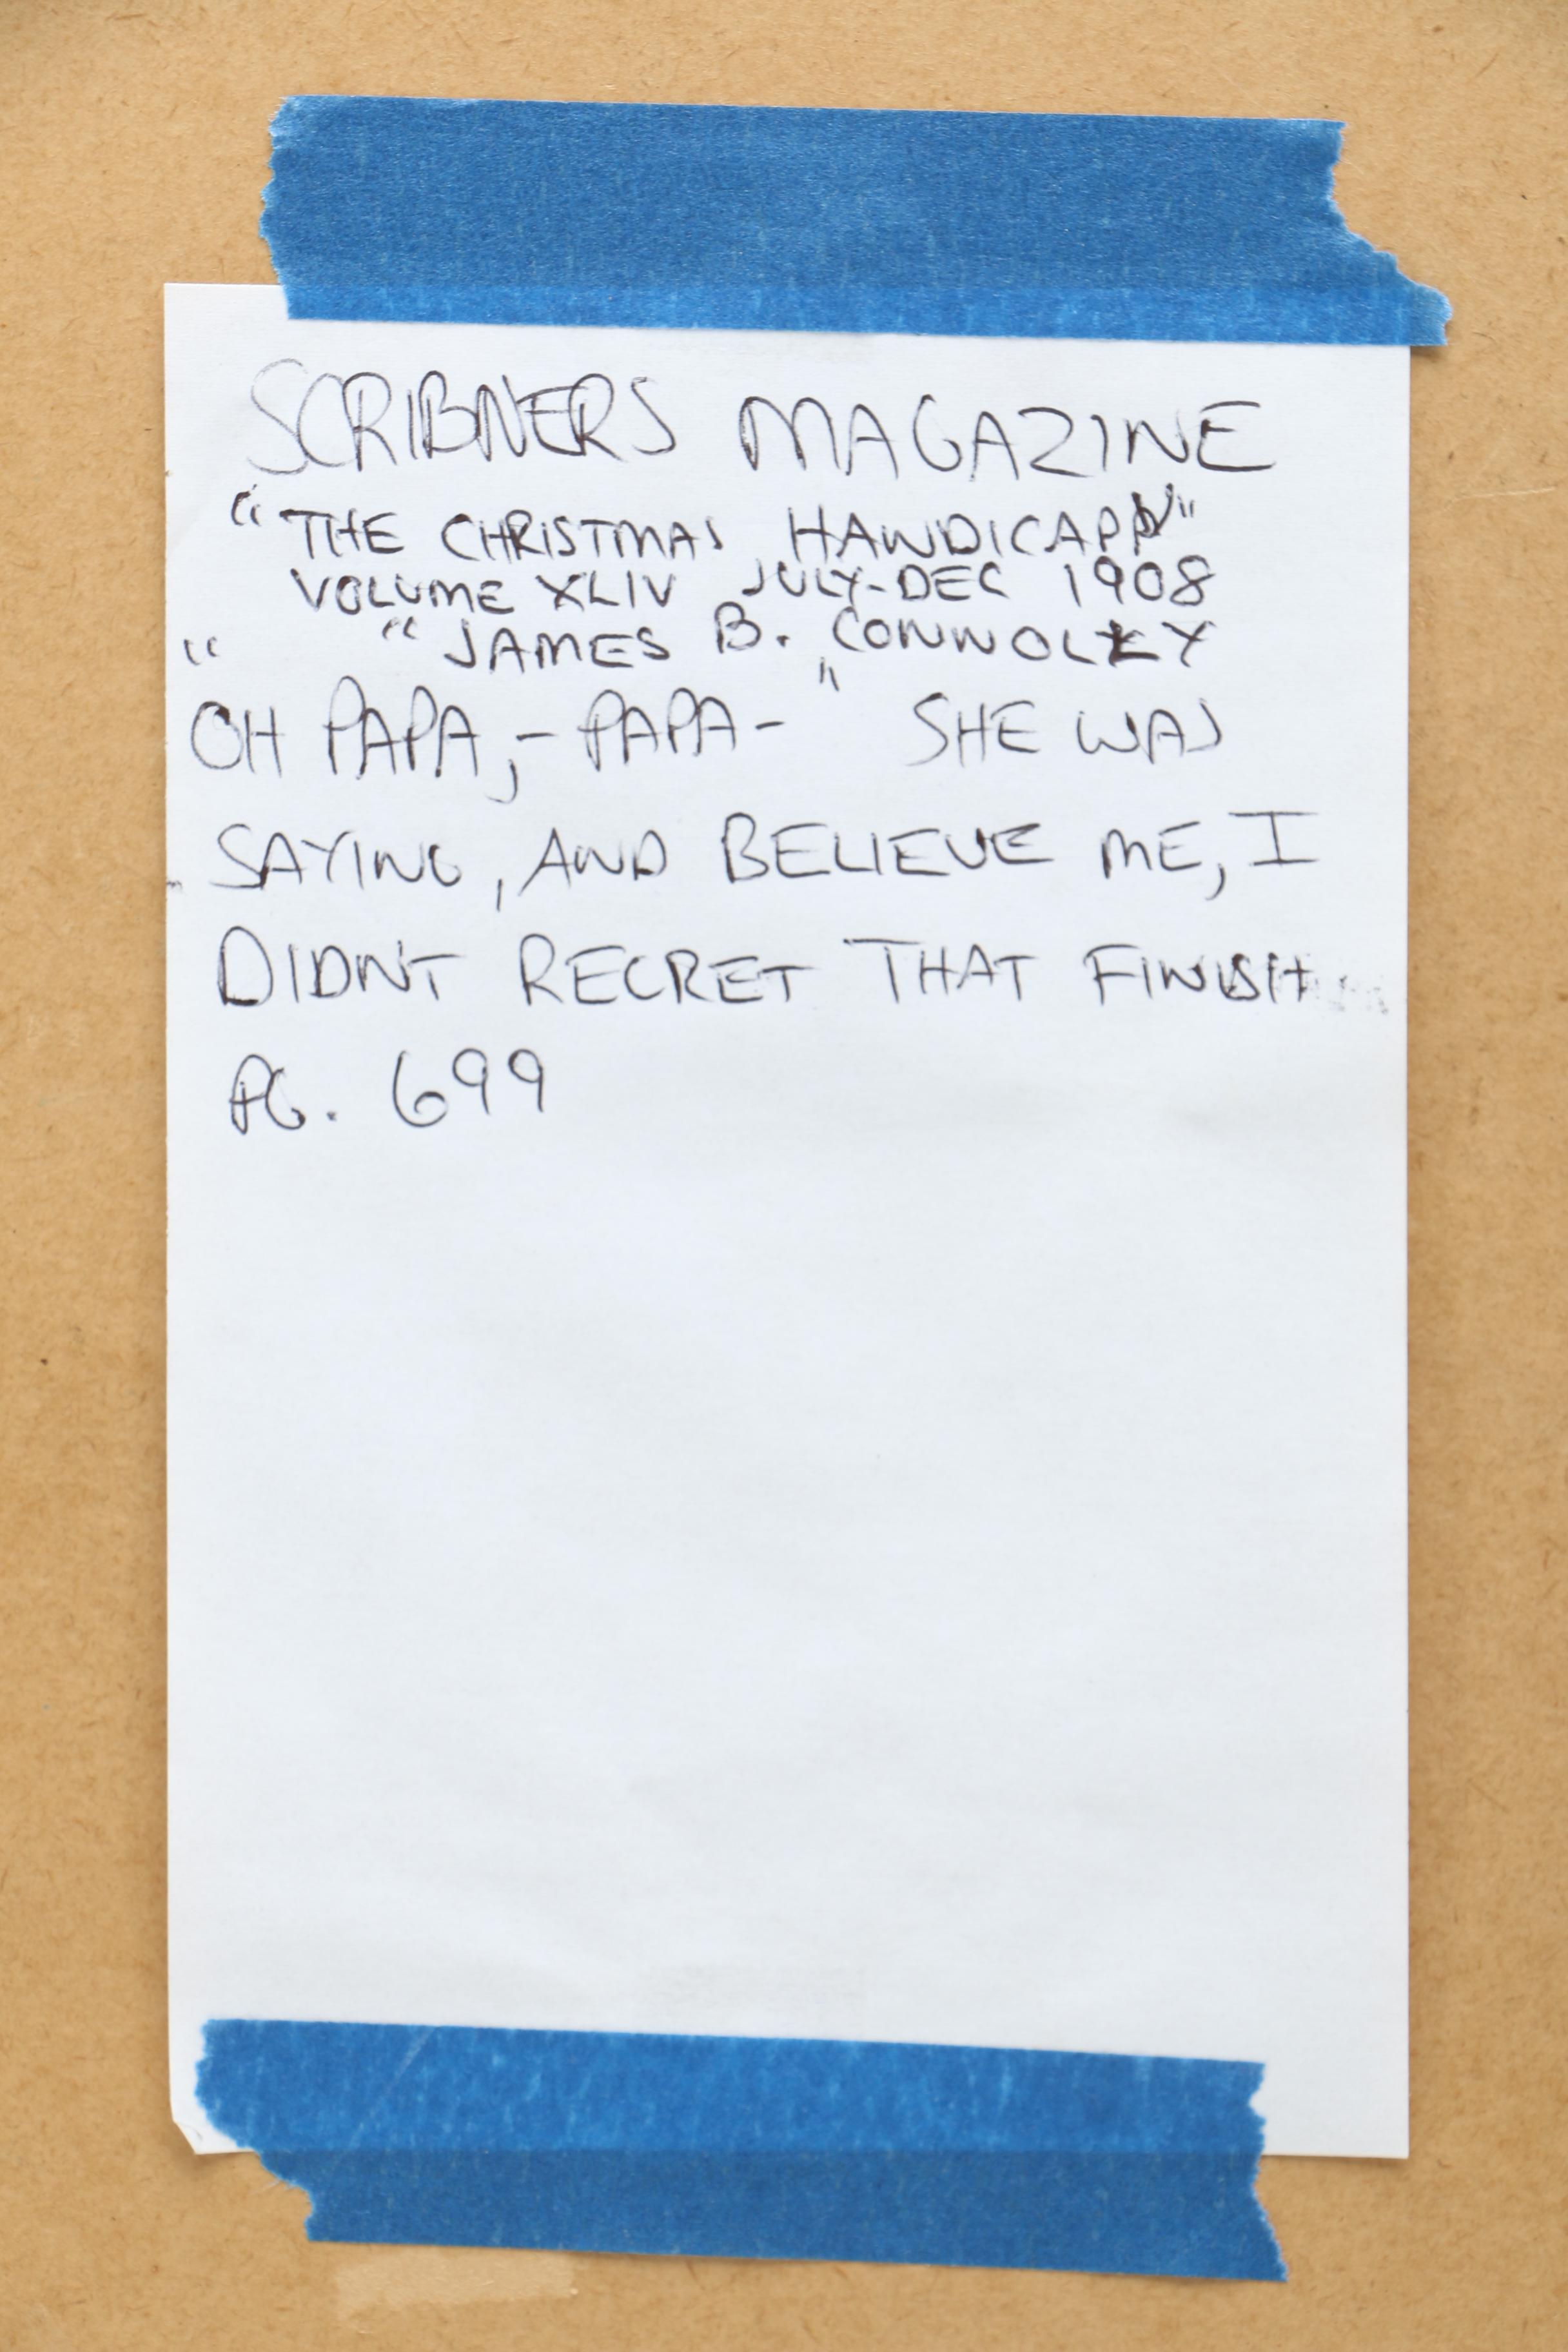 SCRIBNERS MAGAZINE
"THE CHRISTMAS HANDICAPP"
VOLUME XLIV JULY-DEC 1908
" "JAMES B. CONNOLLY
OH PAPA,- PAPA-" SHE WAS
SAYING, AND BELIEVE ME, I
DIDN'T REGRET THAT FINISH.
PG. 699